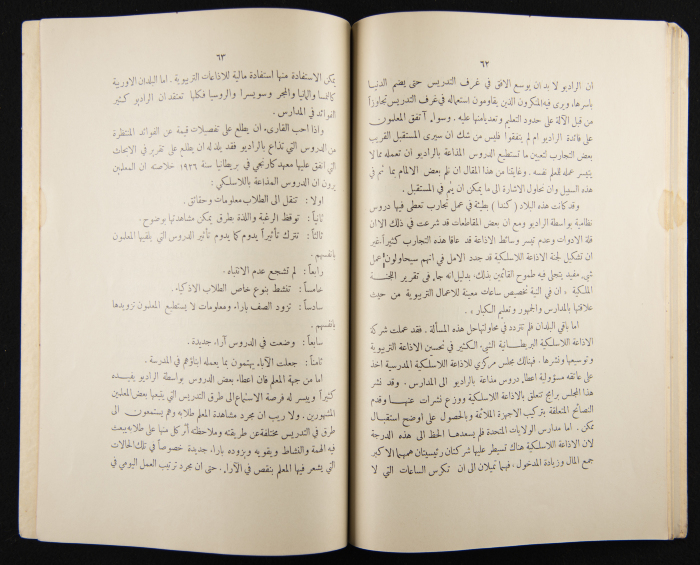 ٦٢
ان الراديو لا بد ان يوسع الافق في غرف التدريس حتى يضم الدنيا
باسرها، ويرى فيه المفكرون الذين يقاومون استعماله في غرف التدريس تجاوزاً
من قبل الآلة على حدود التعليم وتعديا منها عليه. وسواء آتفق المعلمون
على فائدة الراديو ام لم يتفقوا فليس من شك ان سيرى المستقبل القريب
بعض التجارب لتعيين ما تستطيع الدروس المذاعة بالراديو ان تعمله مما لا
يتيسر عمله للمعلم نفسه. وغايتنا من هذا المقال ان نلم بعض الالمام بما تم في
هذه السبيل وان نحاول الاشارة الى ما يمكن ان يتم في المستقبل.
وقد كانت هذه البلاد (كندا) بطيئة في عمل تجارب تعطى فيها دروس
نظامية بواسطة الراديو ومع ان بعض المقاطعات قد شرعت في ذلك الا ان
قلة الادوات وعدم تيسر وسائط الاذاعة قد عاقا هذه التجارب كثيراً، غير
ان تشكيل لجنة الاذاعة اللاسلكية قد جدد الامل في انهم سيحاولون عمل
شيء مفيد يتجلى فيه طموح القائمين بذلك، بدليل انه جاء في تقرير اللجنة
الملكية « ان في النية تخصيص ساعات معينة للاعمال التربوية من حيث
علاقتها بالمدارس والجمهور وتعليم الكبار ».
اما باقي البلدان فلم تتردد في محاولتها حل هذه المسألة. فقد عملت شركة
الاذاعة اللاسلكية البريطانية الشيء الكثير في تحسين الاذاعة التربوية
وتوسيعها ونشرها. فهنالك مجلس مركزي للاذاعة اللاسلكية المدرسية اخذ
على عاتقه مسؤولية اعطاء دروس مذاعة بالراديو الى المدارس. وقد نشر
هذا المجلس برامج تتعلق بالاذاعة اللاسلكية ووزع نشرات عنها وقدم
النصائح المتعلقة بتركيب الاجهزة الملائمة وبالحصول على اوضح استقبال
ممكن. اما مدارس الولايات المتحدة فلم يسعدها الحظ الى هذه الدرجة
لان الاذاعة اللاسلكية هناك تسيطر عليها شركتان رئيسيتان همهما الاكبر
جمع المال وزيادة المدخول، فهما تميلان الى ان تكرس الساعات التي لا
٦٣
يمكن الاستفادة منها استفادة مالية للاذاعات التربوية. اما البلدان الاوربية
كالنمسا والمانيا والمجر وسويسرا والروسيا فكلها تعتقد ان الراديو كثير
الفوائد في المدارس.
واذا احب القارىء ان يطلع على تفصيلات قيمة عن الفوائد المنتظرة
من الدروس التي تذاع بالراديو فقد يلذ له ان يطلع على تقرير في الابحاث
التي انفق عليها معهد كارنجي في بريطانيا سنة ١٩٢٦ خلاصته ان المعلمين
يرون ان الدروس المذاعة باللاسلكي:
اولا: تنقل الى الطلاب معلومات وحقائق.
ثانياً: توقظ الرغبة واللذة بطرق يمكن مشاهدتها بوضوح.
ثالثاً: تترك تأثيراً يدوم كما يدوم تأثير الدروس التي يلقيها المعلمون
بانفسهم.
رابعاً: لم تشجع عدم الانتباه.
خامساً: تنشط بنوع خاص الطلاب الاذكياء.
سادساً: تزود الصف بآراء ومعلومات لا يستطيع المعلمون تزويدها
بانفسهم.
سابعاً: وضعت في الدروس آراء جديدة.
ثامناً: جعلت الآباء يهتمون بما يعمله ابناؤهم في المدرسة.
اما من جهة المعلم فان اعطاء بعض الدروس بواسطة الراديو يفيده
كثيراً وييسر له فرصة الاستماع الى طرق التدريس التي يتبعها بعض المعلمين
المشهورين. ولا ريب ان مجرد مشاهدة المعلم طلابه وهم يستمعون الى
طرق في التدريس مختلفة عن طريقته وملاحظته أثر كل منها على طلابه يبعث
فيه الهمة والنشاط ويقويه ويزوده بآراء جديدة خصوصاً في تلك الحالات
التي يشعر فيها المعلم بنقص في الآراء. حتى ان مجرد ترتيب العمل اليومي في